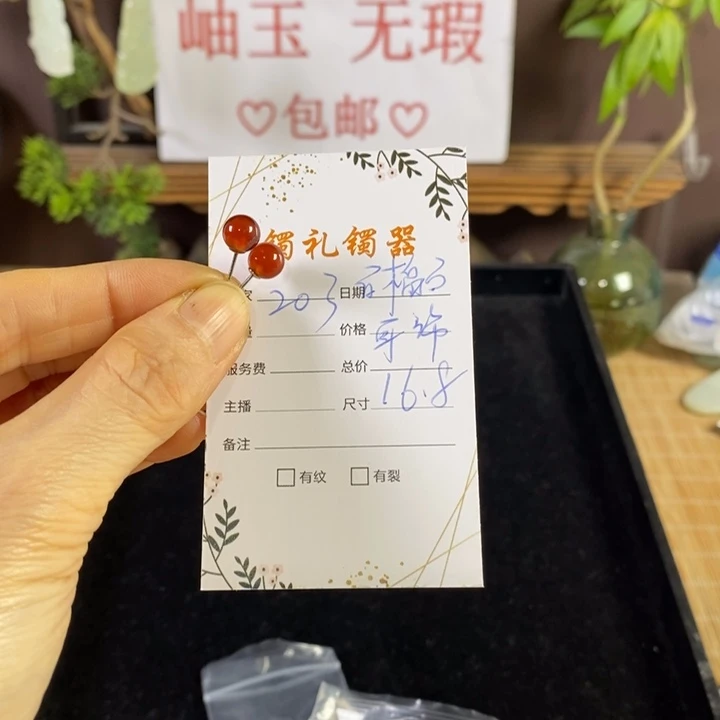 岫玉 无瑕
♡包邮♡
镯礼镯器
203 日期
价格 耳饰
服务费 总价
主播 尺寸 16.8
备注
□有纹 □有裂